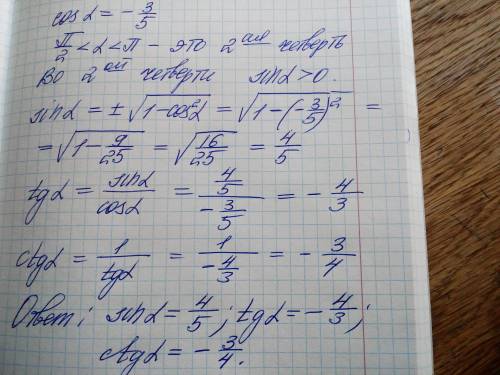 cos α = - 3/5
π/2 < α < π - это 2ая четверть
Во 2ой четверти sin α > 0.
sin α = ± √(1 - cos²α) = √(1 - (-3/5)²) =
= √(1 - 9/25) = √(16/25) = 4/5
tg α = sin α / cos α = (4/5) / (-3/5) = - 4/3
ctg α = 1 / tg α = 1 / (-4/3) = - 3/4
Ответ: sin α = 4/5; tg α = - 4/3;
ctg α = - 3/4.